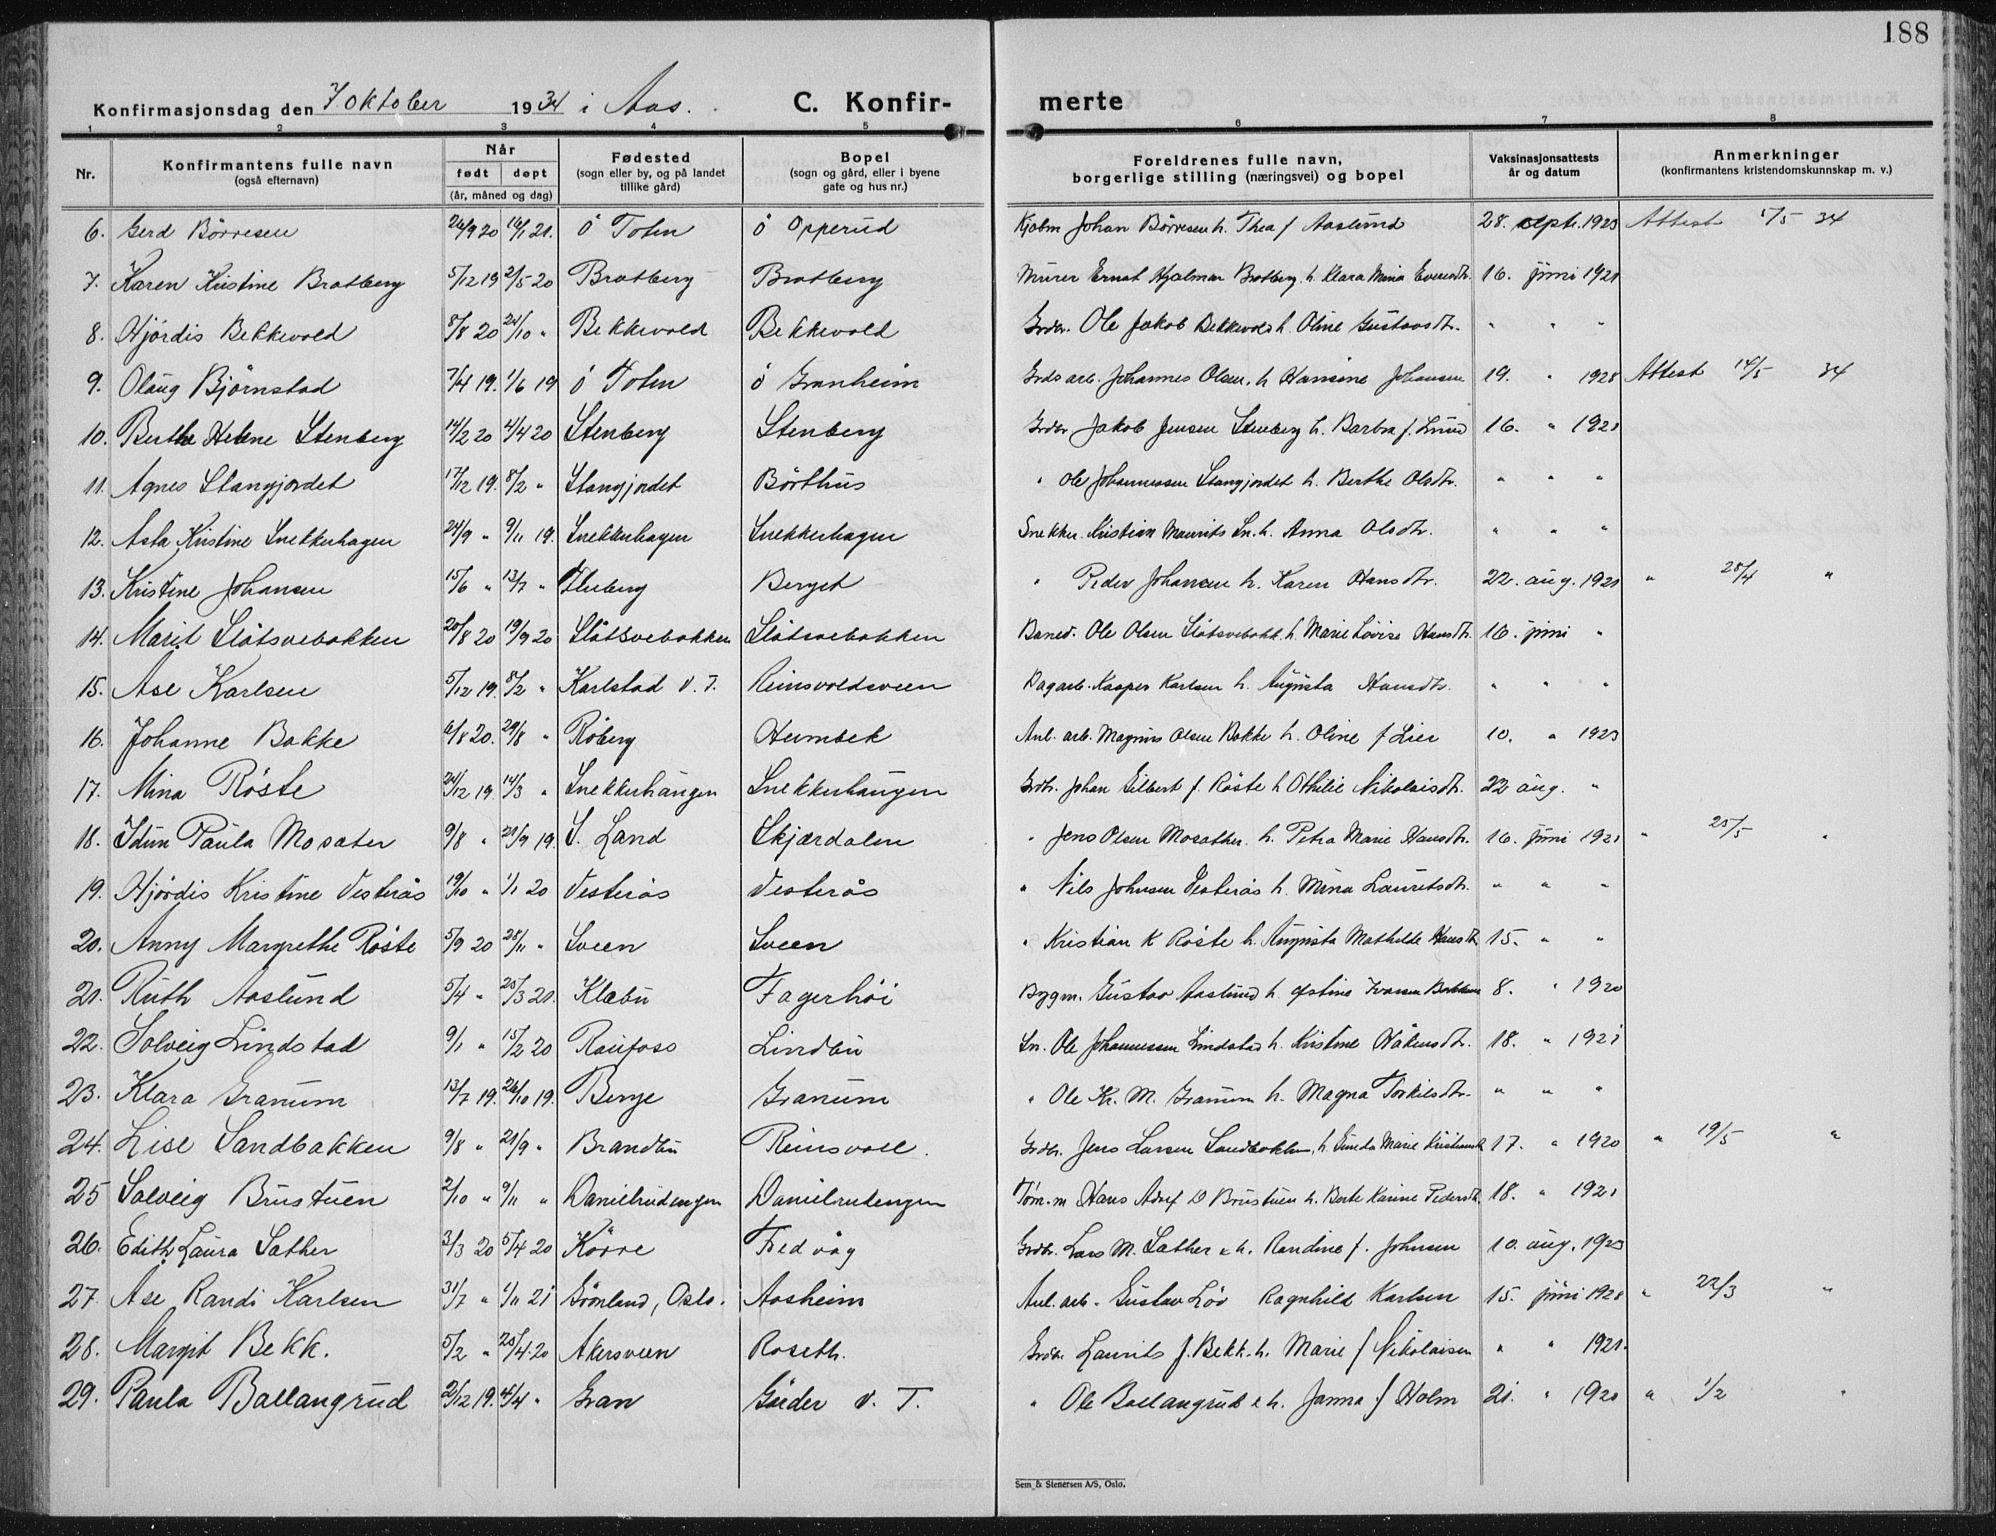 188
Konfirmasjonsdag den 7 oktober 1934 i Aas. C. Konfir- merte
1 2 3 4 5 6 7 8
Nr. Konfirmantens fulle navn (også efternavn) Når født døpt (år, måned og dag) Fødested (sogn eller by, og på landet tillike gård) Bopel (sogn og gård, eller i byene gate og hus nr.) Foreldrenes fulle navn, borgerlige stilling (næringsvei) og bopel Vaksinasjonsattests år og datum Anmerkninger (konfirmantens kristendomskunnskap m. v.)
6. Gerd Børresen 26/9 20 16/1 21. Ö Toten ö Opperud Johan Börresen h. Thea f Aaslund 28. sept. 1923 Attest 5/5 34
7. Karen Kristine Bratberg 5/12 19 2/5 20 Bratberg Bratberg Murer Ernst Hjalmar Bratberg h. Klara Mina Evensdtr. 16. juni 1921
8. Hjördis Bekkevold 8/8 20 24/10 " Bekkevold Bekkevold Grdbr. Ole Jakob Bekkevold h. Oline Gustavsdtr. " " "
9. Olaug Björnstad 7/4 19. 1/6 19 ö Toten ö Granheim Grds arb. Johannes Olsen. h Hansine Johansen 19. " 1928 Attest 16/5 34
10. Berthe Helene Stenberg 14/2 20 4/4 20 Stenberg Stenberg Grdbr Jakob Jensen Stenberg h. Barbra f. Lund 16. " 1921
11. Agnes Stangjordet 17/12 19. 8/2 " Stangjordet Börthus " Ole Johannessen Stangjordet h. Berthe Olsdtr. " " "
12. Asta Kristine Snekkerhagen 24/9 " 9/11 19. Snekkerhagen Snekkerhagen Snekker. Kristian Maurits Sn. h. Anna Olsdtr. " " "
13. Kristine Johansen 15/6 " 13/7 " Fluberg Berget " Peder Johansen h. Karen Hansdtr. 22. aug. 1921 " 28/4 "
14. Marit Slåtsvebakken 20/8 20 19/9 20 Slåtsvebakken Slåtsvebakken Baned. Ole Olsen Slåtsvebakk. h. Marie Lovise Hansdtr. 16. juni "
15. Åse Karlsen 5/12 19. 8/2 " Karlstad V. T. Reinsvoldsveen Dagarb. Kasper Karlsen h. Augusta Hansdtr. " " "
16. Johanne Bakke 6/8 20. 29/8 " Röberg Heimbek Anl. arb. Magnus Olsen Bakke h. Oline f Lier 10. " 1923
17. Mina Röste 24/12 19. 14/3 " Snekkerhaugen Snekkerhaugen Grdbr. Johan Eilbert J. Röste h Othilie Nikolaisdtr. 22 aug. "
18. Idun Paula Mosæter 9/8 " 21/9 19. S. Land Skjærdalen " Jens Olsen Mosæther. h. Petra Marie Hansdtr. 16. juni 1921 " 25/5 "
19. Hjördis Kristine Vesterås 19/10 " 1/1 20 Vesterås Vesterås " Nils Johnsen Vesterås h. Mina Lauritsdtr. " " "
20. Anny Margrethe Röste 5/9 20 28/11 " Sveen Sveen " Kristian K Röste h. Augusta Mathilde Hansdtr 15. " "
21. Ruth Aaslund 5/4 " 25/3 21. Klæbu Fagerhöi Byggm. Gustav Aaslund h. Iversen Bakken 8. " 1920
22. Solveig Lindstad 9/1 " 15/2 20 Raufoss Lindbu Sn. Ole Johannessen Lindstad h. Kristine Håkensdtr. 18. " 1921
23. Klara Granum 13/7 19. 26/10 19. Berge Granum " Ole Kr. M. Granum h. Magna Torkilsdtr. " " "
24. Lise Sandbakken 9/8 " 21/9 " Brandbu Reinsvoll. Grdbr. Jens Larsen Sandbakken, h. Marie Kristiansdtr 17. " 1920 " 19/5 "
25 Solveig Brustuen 2/10 " 9/11 " Danielrudengen Danielrudengen Töm.m Hans Adolf O Brustuen h. Berte Karine Pedersdtr. 18. " 1921
26. Edith Laura Sæther 3/3 20 5/4 20 Körre Fredvåg Grdbr. Lars M. Sæther & h. Randine f. Johnsen 10. aug. 1923
27. Åse Randi Karlsen 31/7 " 1/11 21 Grönland, Oslo. Aasheim Anl. arb. Gustav Löv Ragnhild Karlsen 15. juni 1928 " 22/3 "
28. Margit Bekk. 5/2 " 25/4 20 Akersveen Roseth. Grdbr. Laurits J. Bekk. h. Marie f Nikolaisen " " 1921.
29. Paula Ballangrud 2/12 19. 4/4 " Gran Gårder V. T. " Ole Ballangrud & h. Janna f Holm 21. " 1920 " 1/2 "
Sem & Stenersen A/S, Oslo.